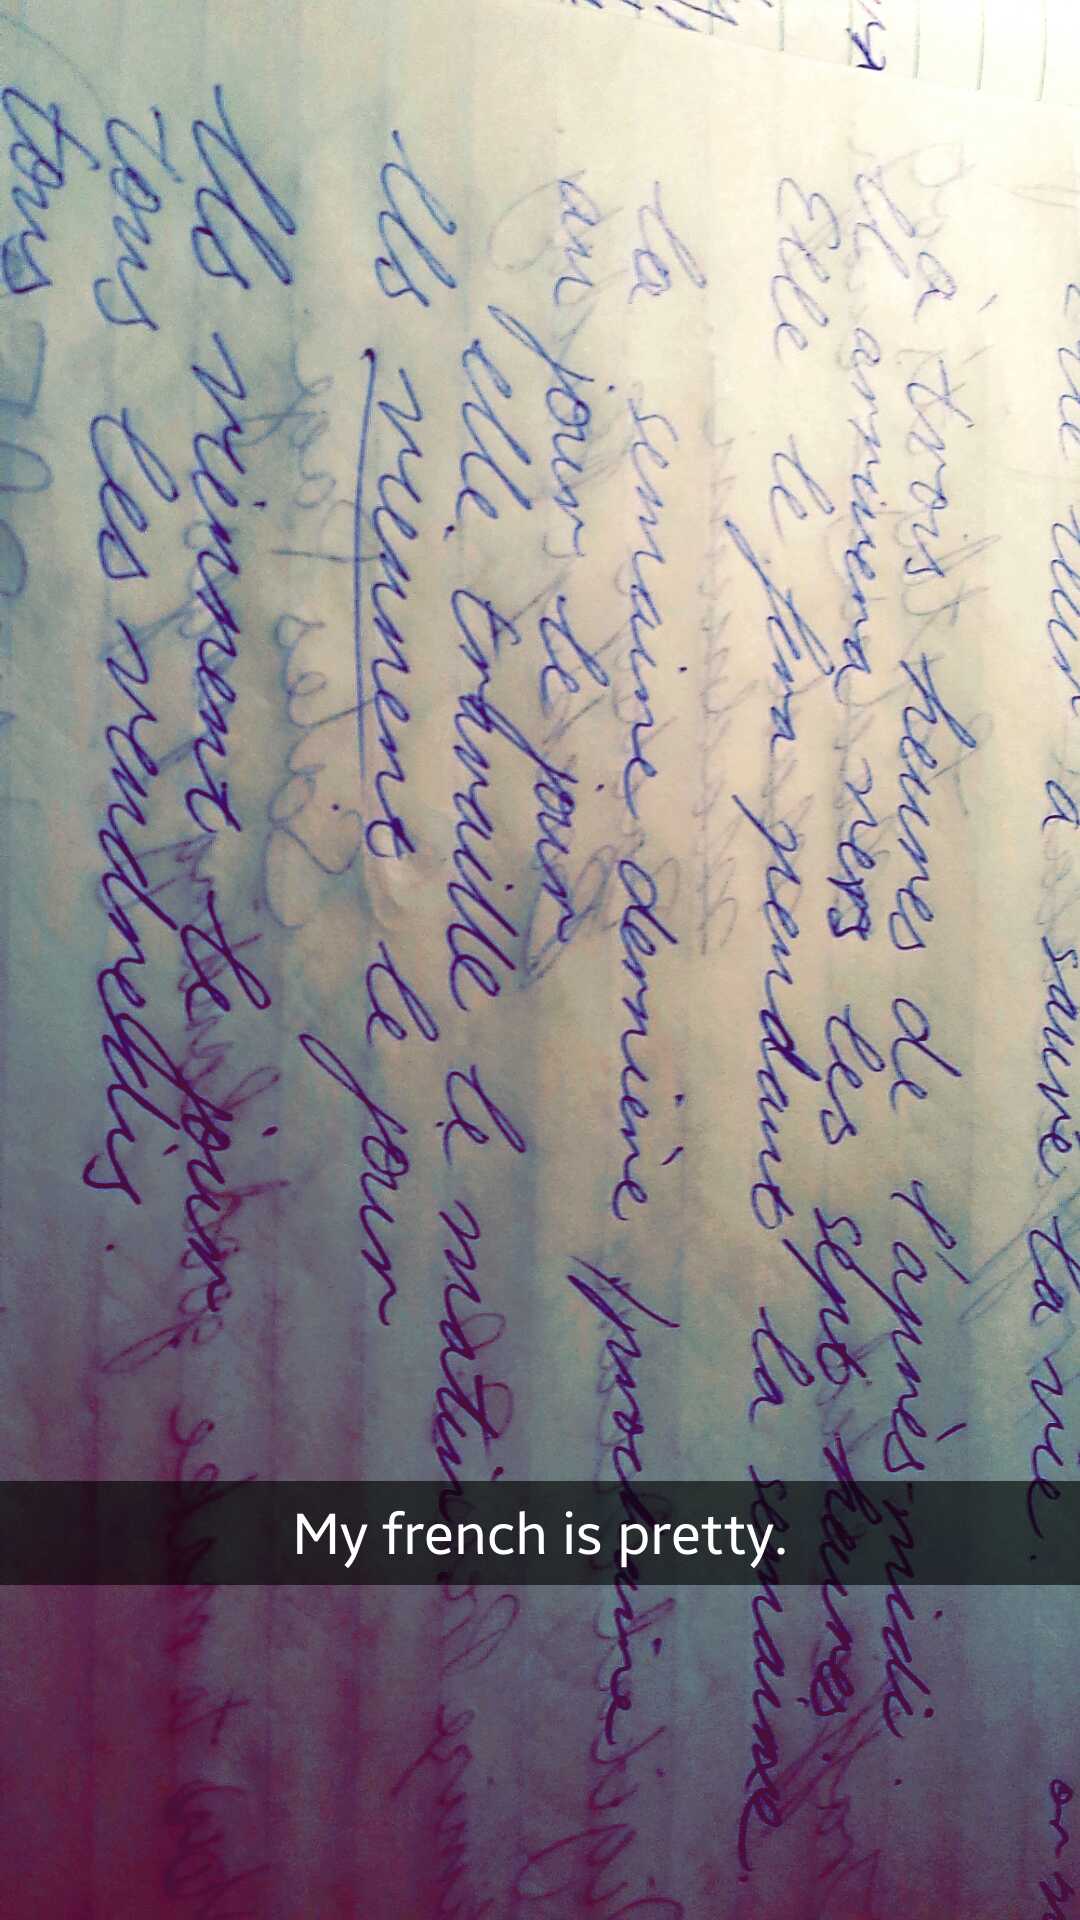 a sauvé ta vie.
à trois heures de l'après-midi.
Il arrivera vers les sept heures.
Elle le fera pendant la semaine.
la semaine dernière prochaine
un jour le jour
elle travaille le matin
Ils viennent le jour
Ils viennent le jour
tous les vendredis.
tous
My french is pretty.